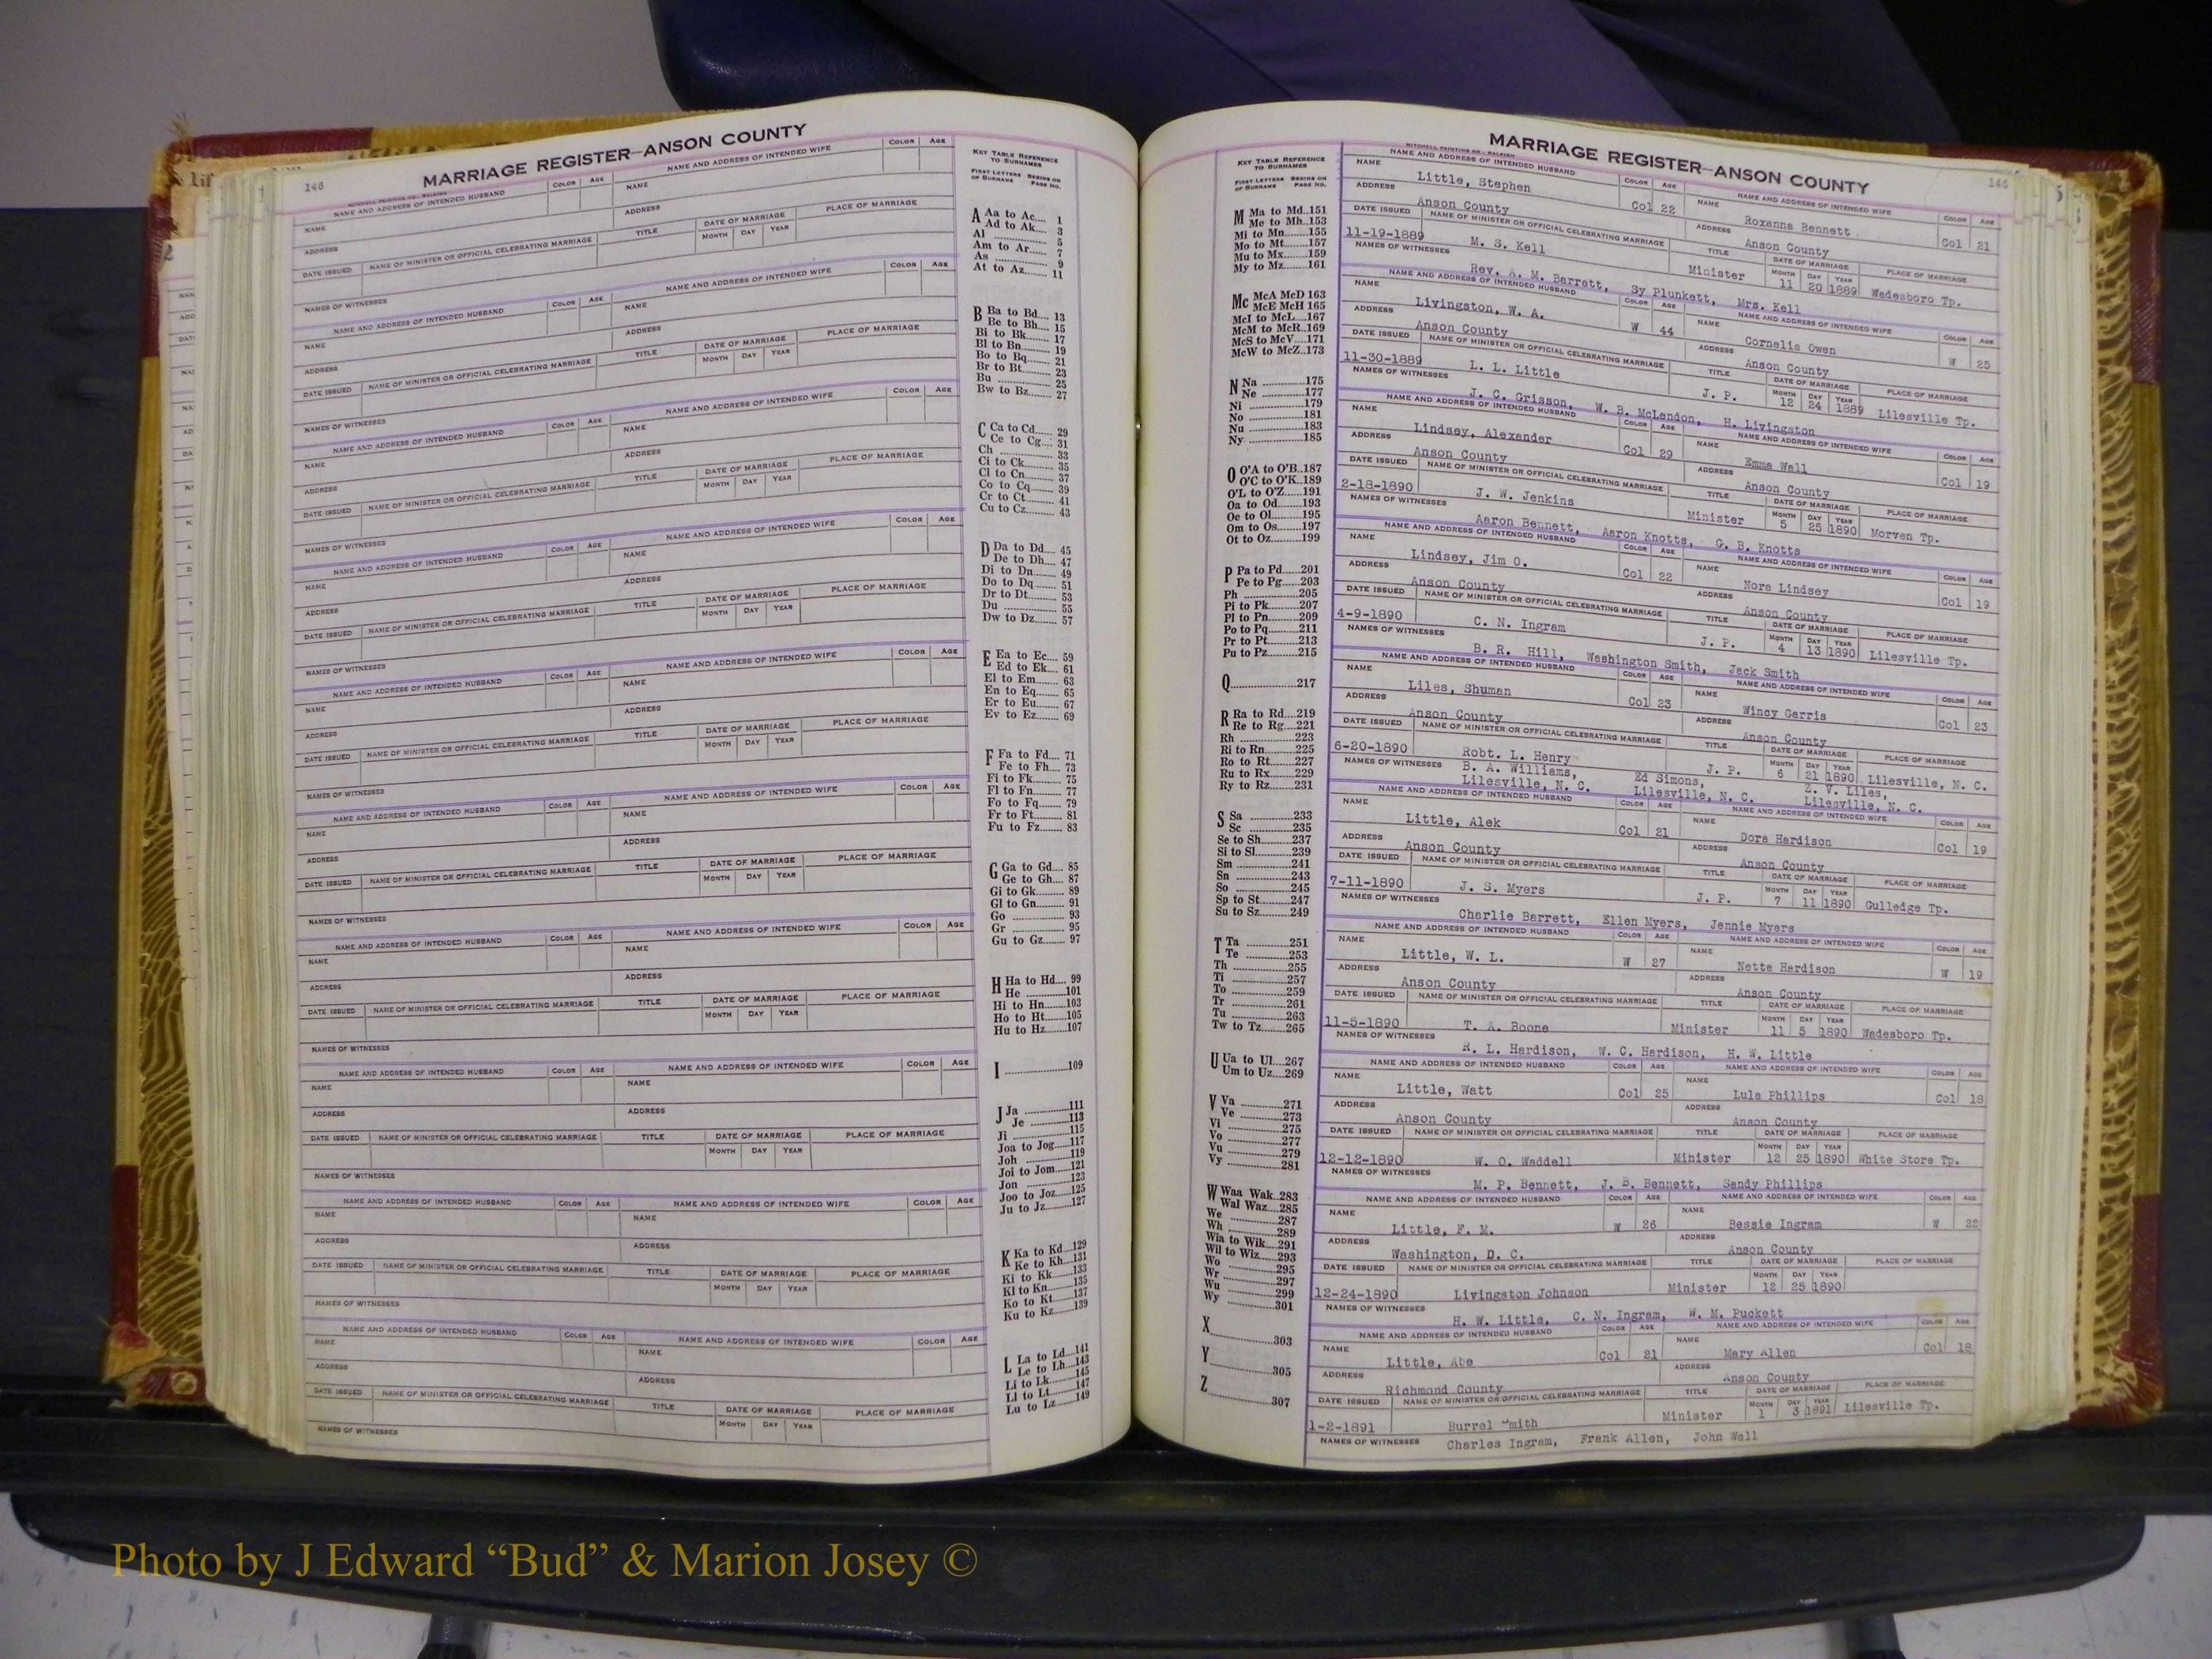 146
MARRIAGE REGISTER—ANSON COUNTY
KEY TABLE REFERENCE
TO SURNAMES
FIRST LETTERS OF SURNAME BEGINS ON PAGE NO.
A Aa to Ac.... 1
Ad to Ak.... 3
Al ........ 5
Am to Ar..... 7
As ........ 9
At to Az....... 11
B Ba to Bd.... 13
Be to Bh.... 15
Bi to Bk........ 17
Bl to Bn........ 19
Bo to Bq....... 21
Br to Bt........ 23
Bu ........ 25
Bw to Bz....... 27
C Ca to Cd..... 29
Ce to Cg... 31
Ch ........ 33
Ci to Ck........ 35
Cl to Cn........ 37
Co to Cq....... 39
Cr to Ct........ 41
Cu to Cz........ 43
D Da to Dd.... 45
De to Dh.... 47
Di to Dn........ 49
Do to Dq....... 51
Dr to Dt........ 53
Du ........ 55
Dw to Dz...... 57
E Ea to Ec.... 59
Ed to Ek.... 61
El to Em....... 63
En to Eq....... 65
Er to Eu....... 67
Ev to Ez....... 69
F Fa to Fd.... 71
Fe to Fh.... 73
Fi to Fk........ 75
Fl to Fn........ 77
Fo to Fq....... 79
Fr to Ft........ 81
Fu to Fz........ 83
G Ga to Gd.... 85
Ge to Gh.... 87
Gi to Gk........ 89
Gl to Gn........ 91
Go ........ 93
Gr ........ 95
Gu to Gz....... 97
H Ha to Hd.... 99
He ........101
Hi to Hn.......103
Ho to Ht.......105
Hu to Hz.......107
I ........109
J Ja ........111
Je ........113
Ji ........115
Joa to Jog.....117
Joh ........119
Joi to Jom.....121
Jon ........123
Joo to Joz.....125
Ju to Jz........127
K Ka to Kd....129
Ke to Kh....131
Ki to Kk........133
Kl to Kn........135
Ko to Kt........137
Ku to Kz........139
L La to Ld....141
Le to Lh....143
Li to Lk........145
Ll to Lt........147
Lu to Lz........149
NAME AND ADDRESS OF INTENDED HUSBAND COLOR AGE NAME AND ADDRESS OF INTENDED WIFE COLOR AGE
NAME NAME
ADDRESS ADDRESS
DATE ISSUED NAME OF MINISTER OR OFFICIAL CELEBRATING MARRIAGE TITLE DATE OF MARRIAGE MONTH DAY YEAR PLACE OF MARRIAGE
NAMES OF WITNESSES
KEY TABLE REFERENCE
TO SURNAMES
FIRST LETTERS OF SURNAME BEGINS ON PAGE NO.
M Ma to Md..151
Me to Mh..153
Mi to Mn.......155
Mo to Mt.......157
Mu to Mx.......159
My to Mz.......161
Mc McA McD 163
McE McH 165
McI to McL....167
McM to McR..169
McS to McV....171
McW to McZ..173
N Na ........175
Ne ........177
Ni ........179
No ........181
Nu ........183
Ny ........185
O O'A to O'B..187
O'C to O'K..189
O'L to O'Z......191
Oa to Od.......193
Oe to Ol........195
Om to Os.......197
Ot to Oz........199
P Pa to Pd......201
Pe to Pg.....203
Ph ........205
Pi to Pk.........207
Pl to Pn........209
Po to Pq........211
Pr to Pt........213
Pu to Pz........215
Q........217
R Ra to Rd....219
Re to Rg....221
Rh ........223
Ri to Rn........225
Ro to Rt........227
Ru to Rx........229
Ry to Rz........231
S Sa ........233
Sc ........235
Se to Sh........237
Si to Sl........239
Sm ........241
Sn ........243
So ........245
Sp to St........247
Su to Sz........249
T Ta ........251
Te ........253
Th ........255
Ti ........257
To ........259
Tr ........261
Tu ........263
Tw to Tz.......265
U Ua to Ul....267
Um to Uz...269
V Va ........271
Ve ........273
Vi ........275
Vo ........277
Vu ........279
Vy ........281
W Waa Wak..283
Wal Waz....285
We ........287
Wh ........289
Wia to Wik....291
Wil to Wiz.....293
Wo ........295
Wr ........297
Wu ........299
Wy ........301
X........303
Y........305
Z........307
MARRIAGE REGISTER—ANSON COUNTY
146
MITCHELL PRINTING CO., RALEIGH
NAME AND ADDRESS OF INTENDED HUSBAND COLOR AGE NAME AND ADDRESS OF INTENDED WIFE COLOR AGE
NAME Little, Stephen Col 22 NAME Roxanna Bennett Col 21
ADDRESS Anson County ADDRESS Anson County
DATE ISSUED NAME OF MINISTER OR OFFICIAL CELEBRATING MARRIAGE TITLE DATE OF MARRIAGE MONTH DAY YEAR PLACE OF MARRIAGE
11-19-1889 M. S. Kell Minister 11 20 1889 Wadesboro Tp.
NAMES OF WITNESSES Rev. A. M. Barrett, Sy Plunkett, Mrs. Kell
NAME Livingston, W. A. W 44 NAME Cornelia Owen W 25
ADDRESS Anson County ADDRESS Anson County
11-30-1889 L. L. Little J. P. 12 24 1889 Lilesville Tp.
NAMES OF WITNESSES J. C. Grisson, W. B. McLendon, H. Livingston
NAME Lindsey, Alexander Col 29 NAME Emma Wall Col 19
ADDRESS Anson County ADDRESS Anson County
2-18-1890 J. W. Jenkins Minister 5 25 1890 Morven Tp.
NAMES OF WITNESSES Aaron Bennett, Aaron Knotts, G. B. Knotts
NAME Lindsey, Jim O. Col 22 NAME Nora Lindsey Col 19
ADDRESS Anson County ADDRESS Anson County
4-9-1890 C. N. Ingram J. P. 4 13 1890 Lilesville Tp.
NAMES OF WITNESSES B. R. Hill, Washington Smith, Jack Smith
NAME Liles, Shuman Col 23 NAME Wincy Garris Col 23
ADDRESS Anson County ADDRESS Anson County
6-20-1890 Robt. L. Henry J. P. 6 21 1890 Lilesville, N. C.
NAMES OF WITNESSES B. A. Williams, Ed Simons, Z. V. Liles,
Lilesville, N. C. Lilesville, N. C. Lilesville, N. C.
NAME Little, Alek Col 21 NAME Dora Hardison Col 19
ADDRESS Anson County ADDRESS Anson County
7-11-1890 J. S. Myers J. P. 7 11 1890 Gulledge Tp.
NAMES OF WITNESSES Charlie Barrett, Ellen Myers, Jennie Myers
NAME Little, W. L. W 27 NAME Netta Hardison W 19
ADDRESS Anson County ADDRESS Anson County
11-5-1890 T. A. Boone Minister 11 5 1890 Wadesboro Tp.
NAMES OF WITNESSES R. L. Hardison, W. C. Hardison, H. W. Little
NAME Little, Watt Col 25 NAME Lula Phillips Col 18
ADDRESS Anson County ADDRESS Anson County
12-12-1890 W. O. Waddell Minister 12 25 1890 White Store Tp.
NAMES OF WITNESSES M. P. Bennett, J. B. Bennett, Sandy Phillips
NAME Little, F. M. W 26 NAME Bessie Ingram W 22
ADDRESS Washington, D. C. ADDRESS Anson County
12-24-1890 Livingston Johnson Minister 12 25 1890
NAMES OF WITNESSES H. W. Little, C. N. Ingram, W. M. Puckett
NAME Little, Abe Col 21 NAME Mary Allen Col 18
ADDRESS Richmond County ADDRESS Anson County
1-2-1891 Burrel Smith Minister 1 3 1891 Lilesville Tp.
NAMES OF WITNESSES Charles Ingram, Frank Allen, John Wall
Photo by J Edward “Bud” & Marion Josey ©